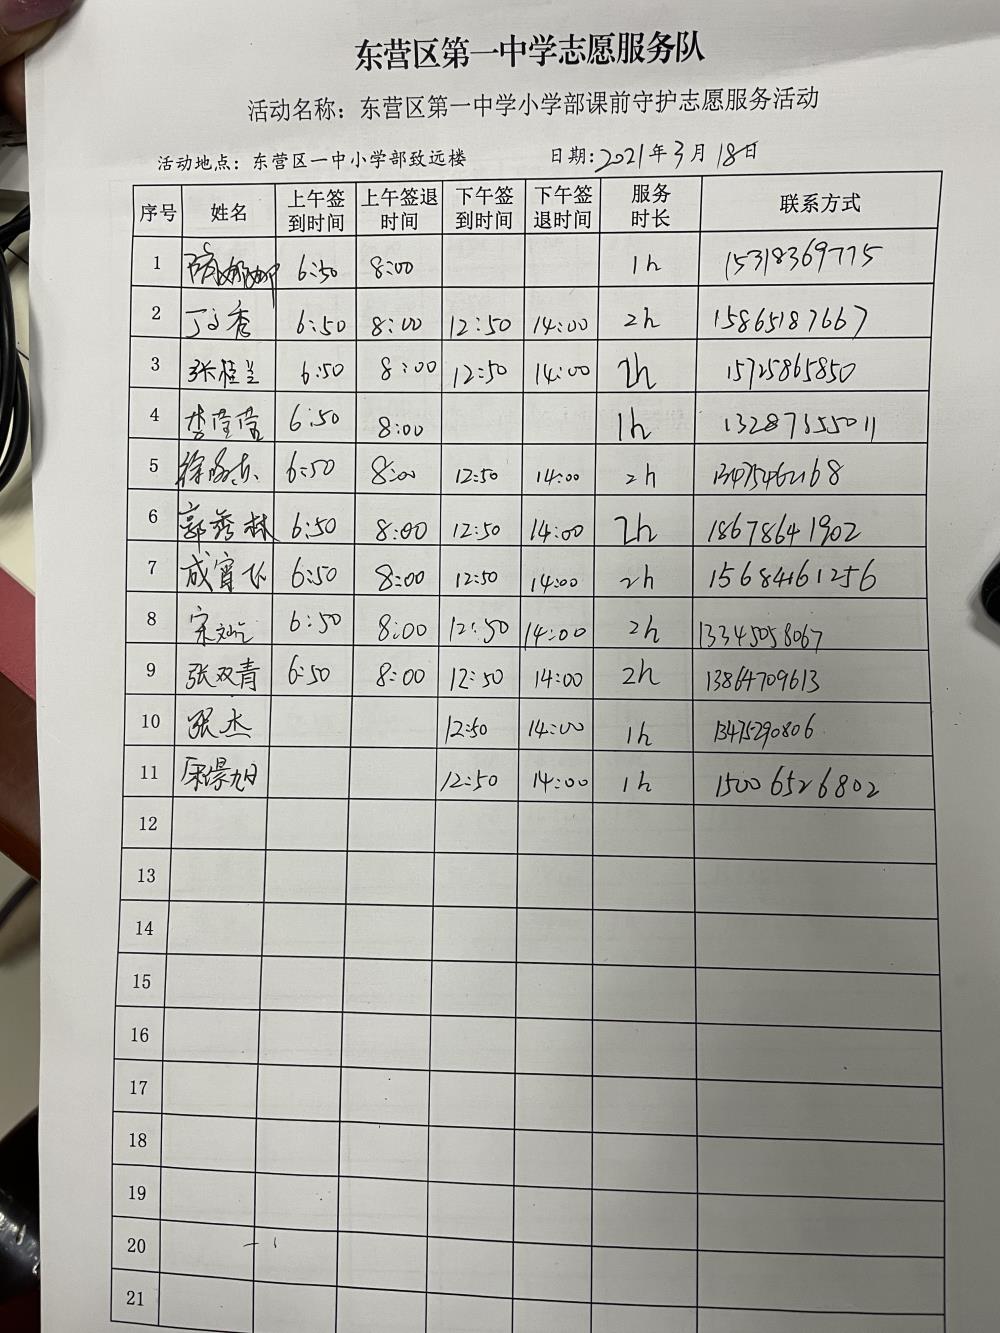 东营区第一中学志愿服务队
活动名称：东营区第一中学小学部课前守护志愿服务活动
活动地点：东营区一中小学部致远楼 日期：2021年3月18日
序号 姓名 上午签到时间 上午签退时间 下午签到时间 下午签退时间 服务时长 联系方式
1 6:50 8:00 1h 15318369775
2 丁文秀 6:50 8:00 12:50 14:00 2h 15865187667
3 张桂兰 6:50 8:00 12:50 14:00 2h 15725865850
4 李莹莹 6:50 8:00 1h 13287355011
5 6:50 8:00 12:50 14:00 2h 13475462168
6 郭秀林 6:50 8:00 12:50 14:00 2h 18678641902
7 成宵飞 6:50 8:00 12:50 14:00 2h 15684161256
8 宋灿 6:50 8:00 12:50 14:00 2h 13345058067
9 张双青 6:50 8:00 12:50 14:00 2h 13864709613
10 张杰 12:50 14:00 1h 13475290806
11 12:50 14:00 1h 15006526802
12
13
14
15
16
17
18
19
20
21